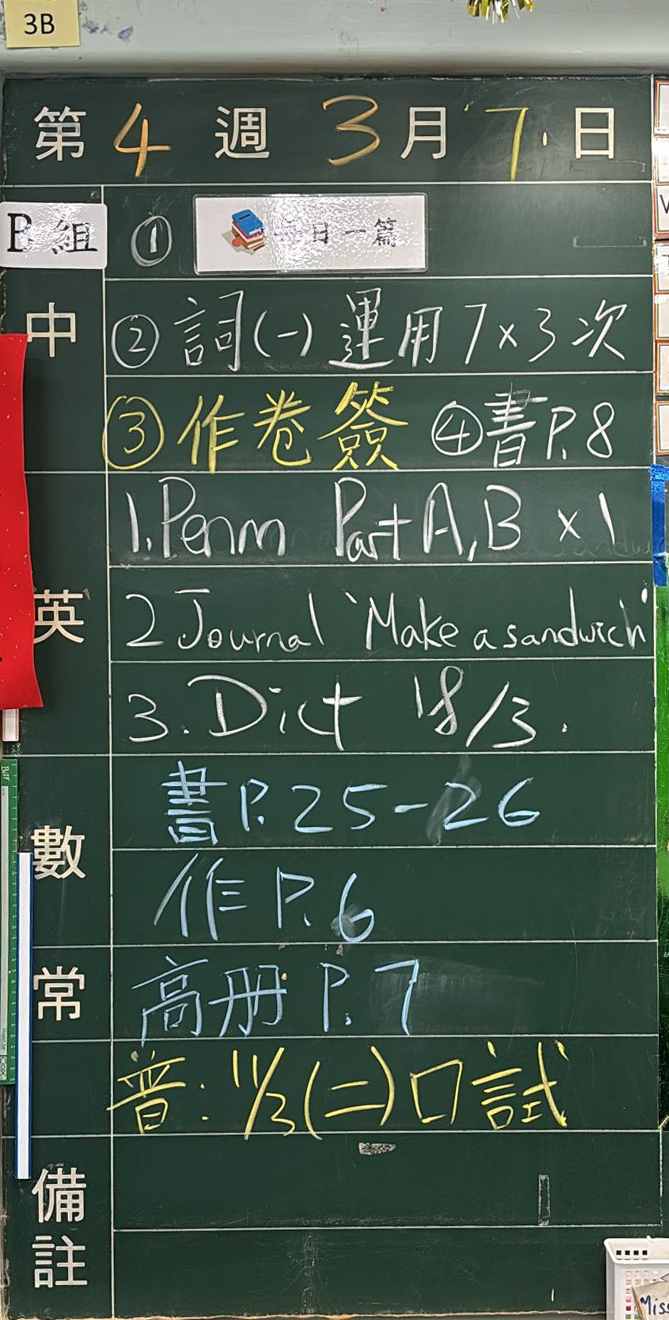 3B
第 4 週 3 月 7. 日
B組 ① 每日一篇
中 ② 詞(一) 運用7×3次
③ 作卷簽 ④ 書P.8
1. Penm Part A, B × 1
英 2 Journal 'Make a sandwich'
3. Dict 18/3.
數 書P. 25-26
作 P. 6
常 高册 P. 7
普: 11/3 (二) 口試
備註
Miss